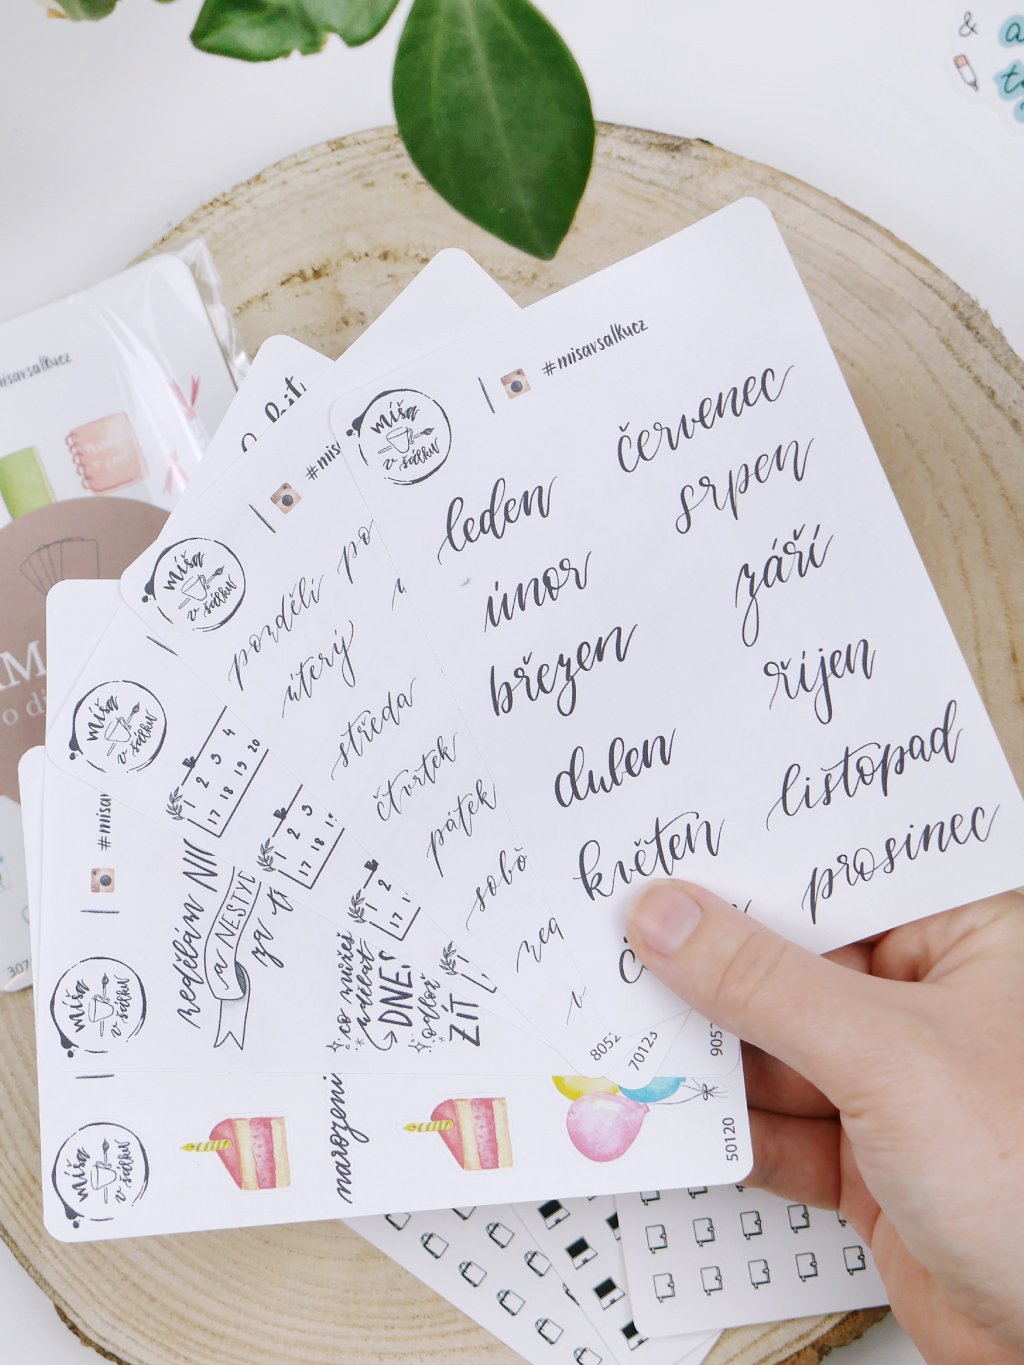 &
#misavsalkucz
míša
v šálku
leden
únor
březen
duben
květen
červenec
srpen
září
říjen
listopad
prosinec
míša
v šálku
pondělí
úterý
středa
čtvrtek
pátek
míša
v šálku
1 2 3 4
17 18 19 20
1 2 3
17 18
1 2
17
nedělám
a NESTYD
za ti
#misav
míša
v šálku
co můžeš
udělat
DNES
odlož
ZÍT
míša
v šálku
narozeni
70123
50120